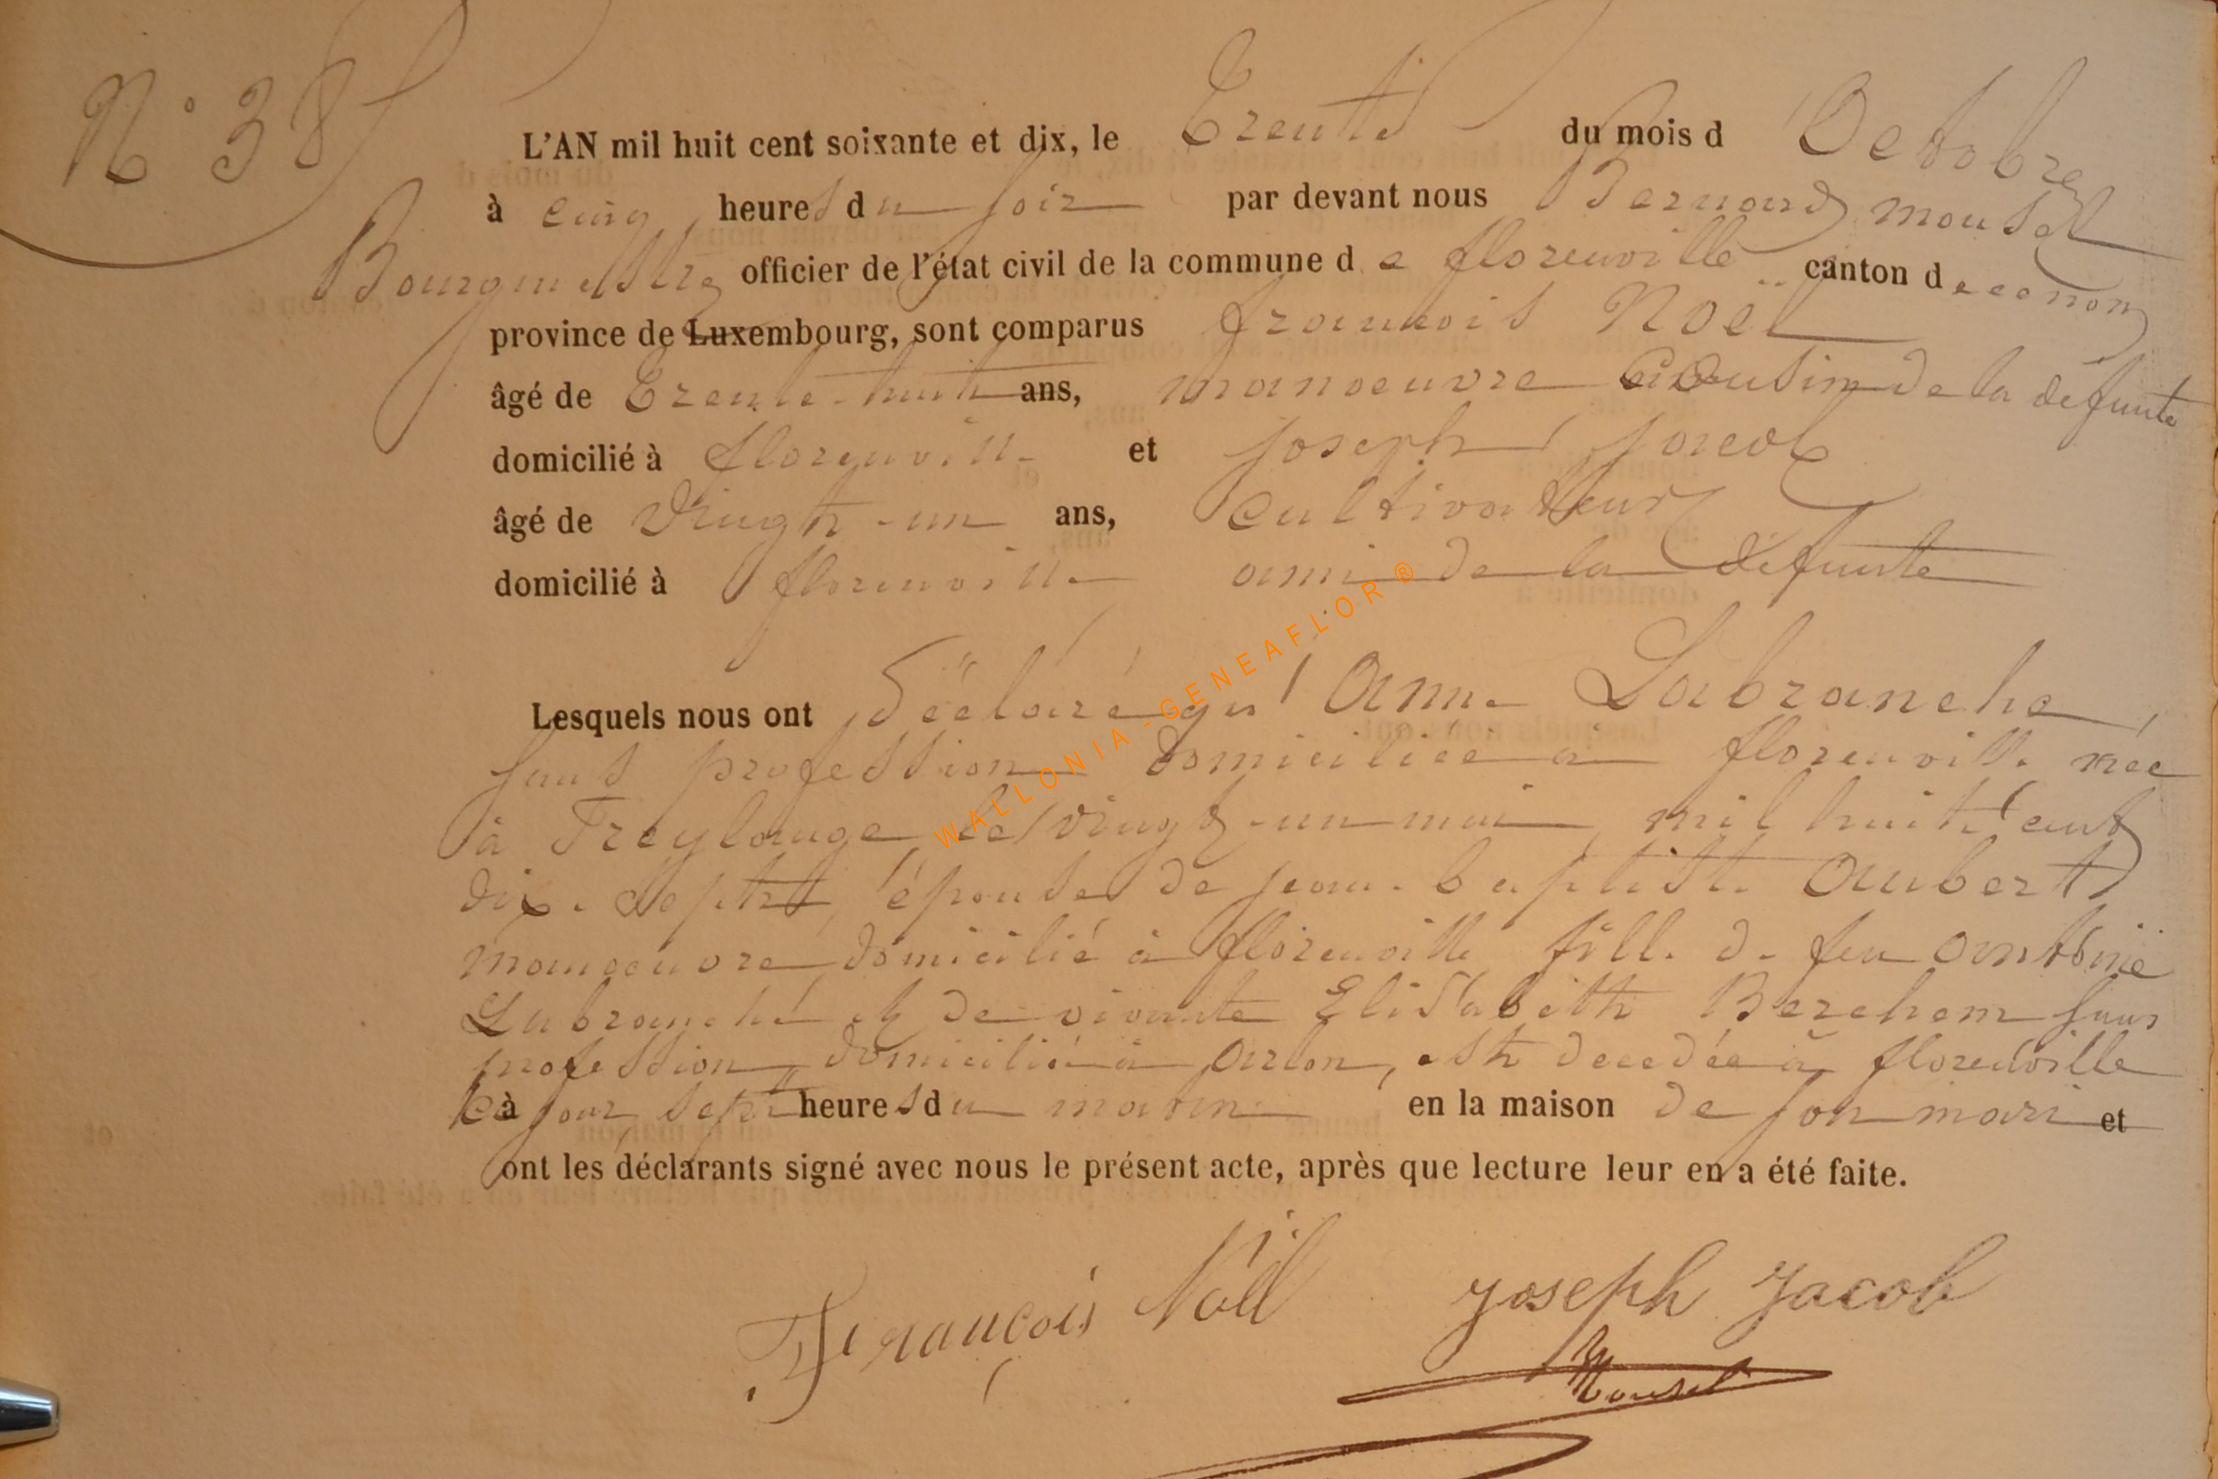 N° 38
L'AN mil huit cent soixante et dix, le Trente du mois d'Octobre
à cinq heures du soir par devant nous Bernard Mousel
Bourgmestre officier de l'état civil de la commune de florenville canton de ce nom
province de Luxembourg, sont comparus francois Noël
âgé de Trente-huit ans, manoeuvre cousin de la défunte
domicilié à florenville et joseph jacob
âgé de Vingt-un ans, cultivateur
domicilié à florenville ami de la défunte
Lesquels nous ont déclaré qu'Anne Labranche,
sans profession domiciliée à florenville née
à Freylange, le vingt-un mai mil huit cent
dix-sept, épouse de jean-baptiste Aubert
manoeuvre domicilié à florenville fille de feu Antoine
Labranche et de vivante Elisabeth Berchem sans
profession domiciliée à Arlon, est decedée à florenville
ce jour à sept heures du matin en la maison de son mari et
ont les déclarants signé avec nous le présent acte, après que lecture leur en a été faite.
François Noël Joseph Jacob
Mousel
WALLONIA-GENEAFLOR®